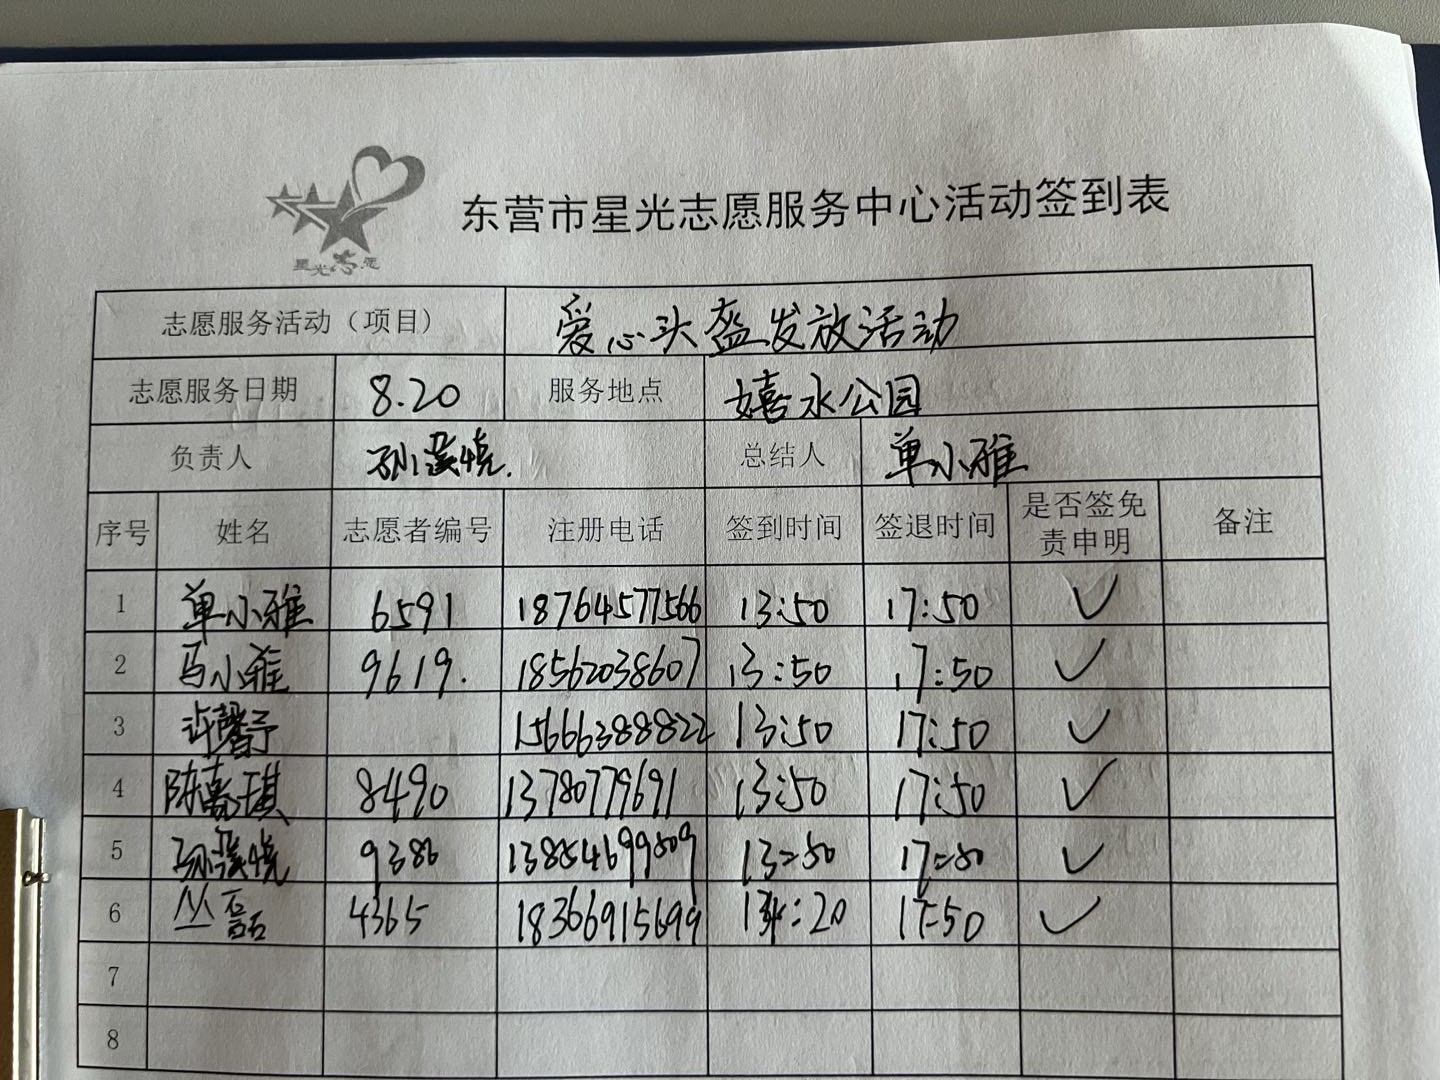 星光志愿
东营市星光志愿服务中心活动签到表
志愿服务活动（项目） 爱心头盔发放活动
志愿服务日期 8.20 服务地点 嬉水公园
负责人 总结人 单小雅
序号 姓名 志愿者编号 注册电话 签到时间 签退时间 是否签免责申明 备注
1 单小雅 6591 18764577566 13:50 17:50 ✓
2 马小雅 9619. 18562038607 13:50 17:50 ✓
3 许馨予 15666388822 13:50 17:50 ✓
4 陈嘉琪 8490 13780779691 13:50 17:50 ✓
5 9386 13854699509 13:50 17:50 ✓
6 丛磊 4365 18366915699 14:20 17:50 ✓
7
8